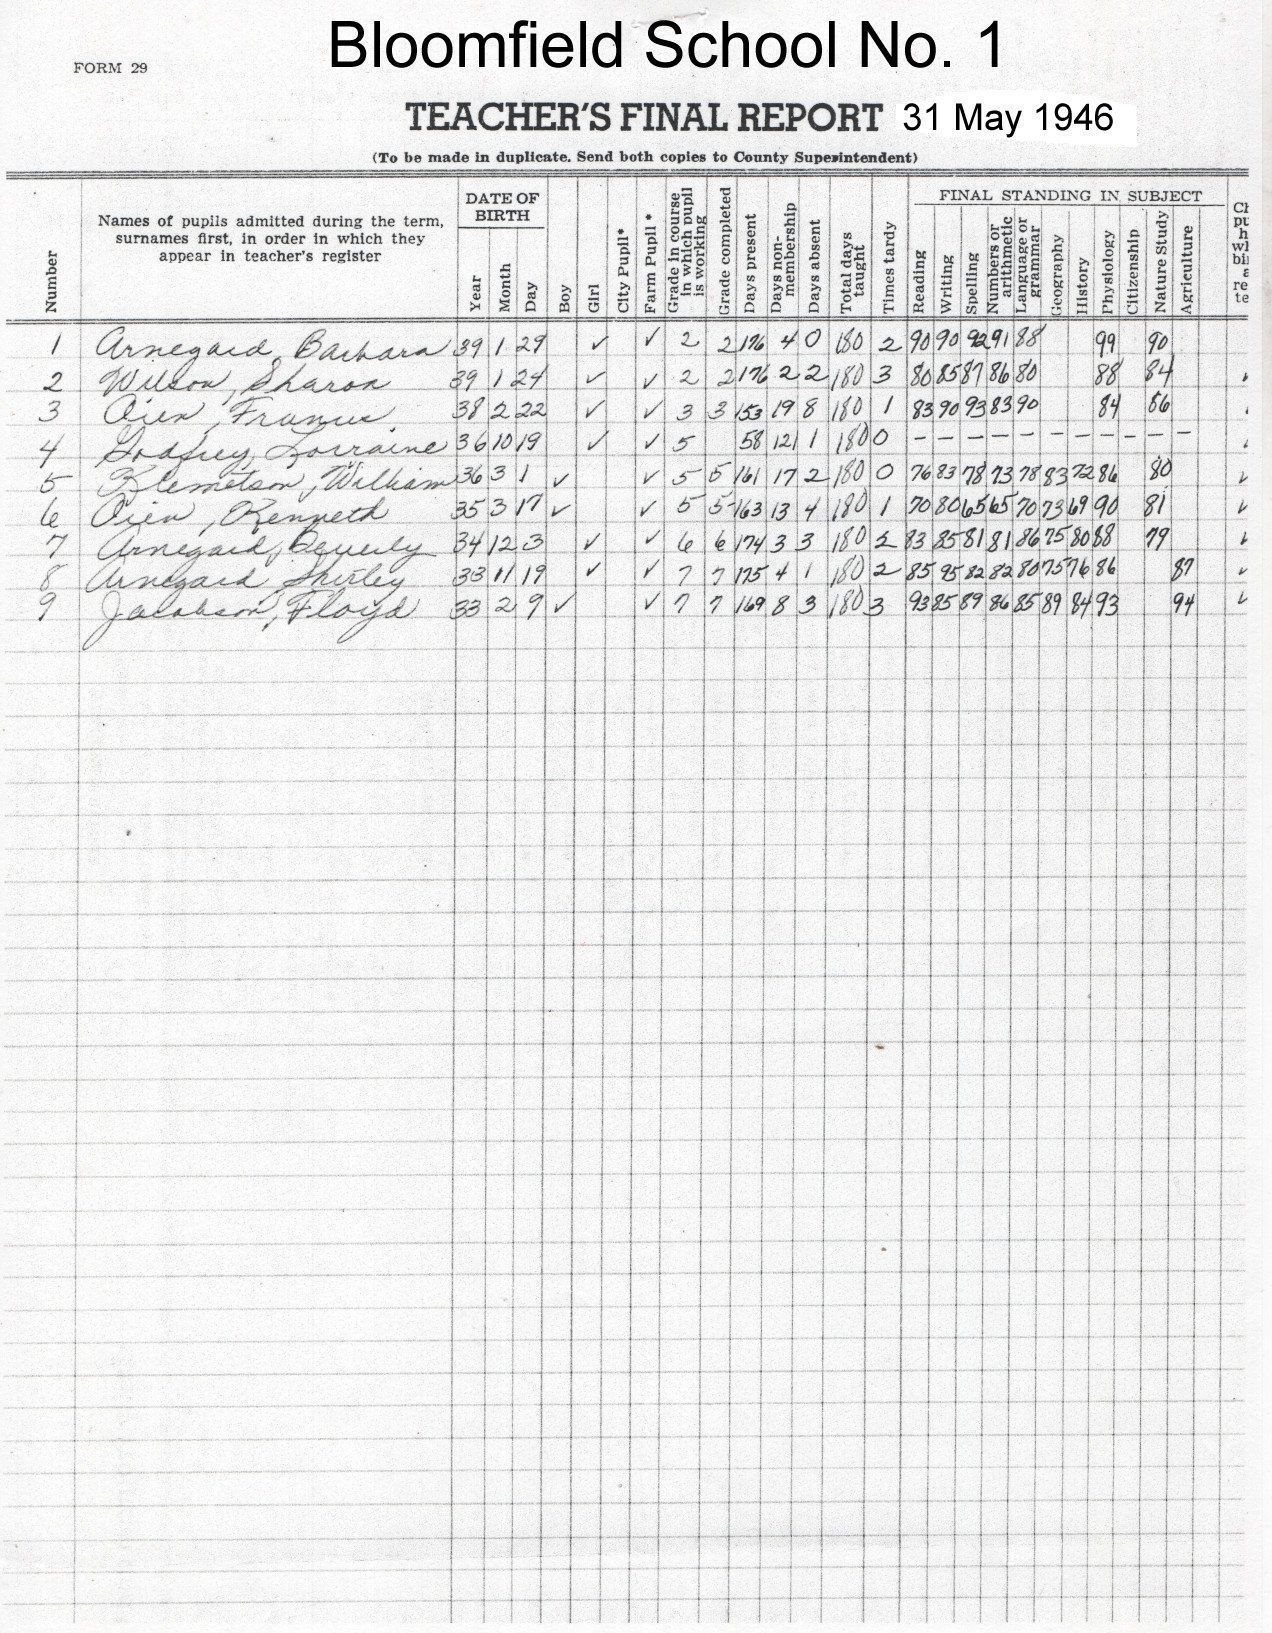 Bloomfield School No. 1
FORM 29
TEACHER'S FINAL REPORT 31 May 1946
(To be made in duplicate. Send both copies to County Superintendent)
Number
Names of pupils admitted during the term, surnames first, in order in which they appear in teacher's register
DATE OF BIRTH
Year Month Day
Boy Girl City Pupil* Farm Pupil*
Grade in course in which pupil is working
Grade completed
Days present
Days non-membership
Days absent
Total days taught
Times tardy
FINAL STANDING IN SUBJECT
Reading Writing Spelling Numbers or arithmetic Language or grammar Geography History Physiology Citizenship Nature Study Agriculture
1 Arnegard, Barbara 39 1 29 ✓ ✓ 2 2 176 4 0 180 2 90 90 92 91 88 99 90
2 Wilson, Sharon 39 1 24 ✓ ✓ 2 2 176 2 2 180 3 80 85 87 86 80 88 84
3 Oien, Francis 38 2 22 ✓ ✓ 3 3 153 19 8 180 1 83 90 93 83 90 84 86
4 Godfrey, Lorraine 36 10 19 ✓ ✓ 5 58 121 1 180 0 – – – – – – – – – – –
5 Klemetson, William 36 3 1 ✓ ✓ 5 5 161 17 2 180 0 76 83 78 73 78 83 72 86 80
6 Oien, Kenneth 35 3 17 ✓ ✓ 5 5 163 13 4 180 1 70 80 65 65 70 73 69 90 81
7 Arnegard, Beverly 34 12 3 ✓ ✓ 6 6 174 3 3 180 2 83 85 81 81 86 75 80 88 79
8 Arnegard Shirley 33 11 19 ✓ ✓ 7 7 175 4 1 180 2 85 95 82 82 80 75 76 86 87
9 Jacobson, Floyd 33 2 9 ✓ ✓ 7 7 169 8 3 180 3 93 85 89 86 85 89 84 93 94